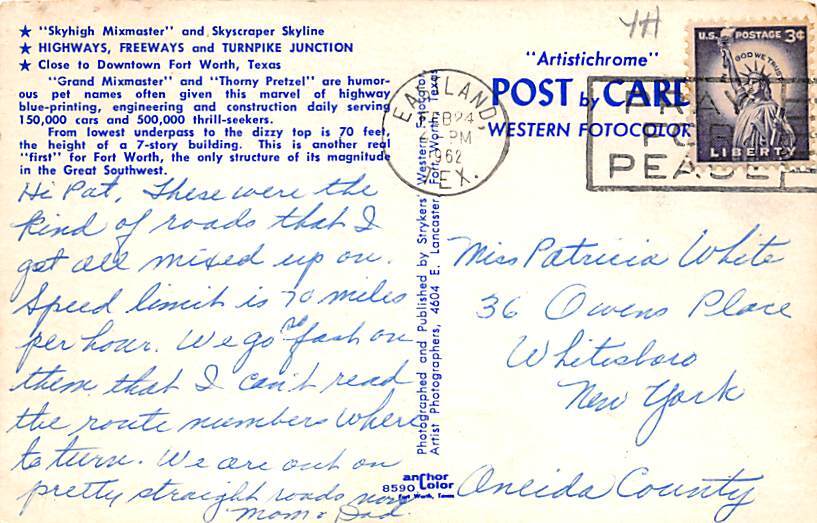 ★ "Skyhigh Mixmaster" and Skyscraper Skyline
★ HIGHWAYS, FREEWAYS and TURNPIKE JUNCTION
★ Close to Downtown Fort Worth, Texas
"Grand Mixmaster" and "Thorny Pretzel" are humor-
ous pet names often given this marvel of highway
blue-printing, engineering and construction daily serving
150,000 cars and 500,000 thrill-seekers.
From lowest underpass to the dizzy top is 70 feet,
the height of a 7-story building. This is another real
"first" for Fort Worth, the only structure of its magnitude
in the Great Southwest.
Hi Pat, These were the
kind of roads that I
got all mixed up on.
Speed limit is 70 miles
per hour. We go so fast on
them that I can't read
the route numbers where
to turn. We are out on
pretty straight roads now
Mom & Dad.
Photographed and Published by Strykers' Western Fotocolor
Artist Photographers, 4604 E. Lancaster, Fort Worth, Texas
8590 anchor color
Fort Worth, Texas
"Artistichrome"
POST by CARD
WESTERN FOTOCOLOR
EASTLAND,
FEB 24
PM
1962
TEX.
PRAY
FOR
PEACE
4H
U.S. POSTAGE 3¢
IN GOD WE TRUST
LIBERTY
Miss Patricia White
36 Owens Place
Whitesboro
New York
Oneida County